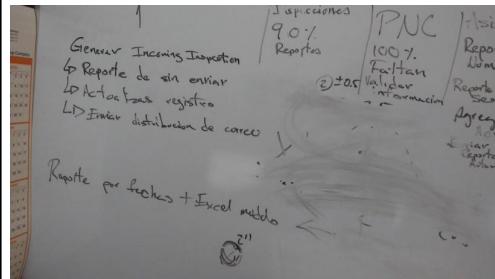 Generar Incoming Inspection
↳ Reporte de sin enviar
↳ Actualizas registro
↳ Enviar distribucion de correo
Reporte por fechas + Excel
2"
Inspecciones
90%
Reportes
PNC
100%
Faltan
② ±0.5 Validar
informacion
Repo
Reporte
Agreg